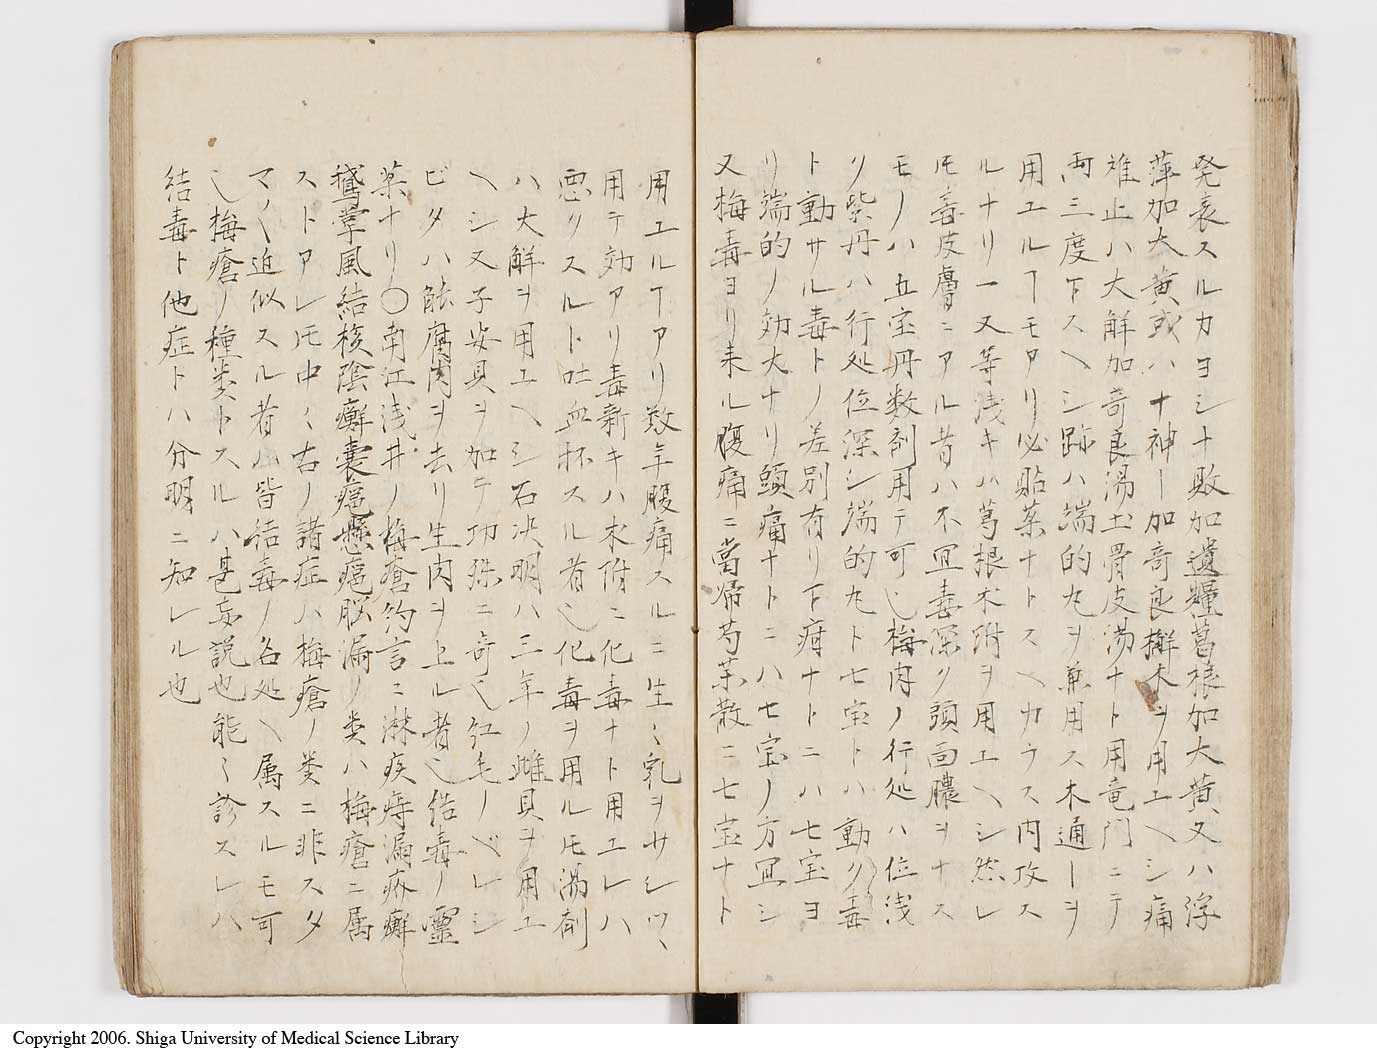 発表スルカヨシナ敗加遺糧葛根加大黄又ハ浮
萍加大黄或ハ十神ー加奇良擀木ヲ用エヘシ痛
难止ハ大解加奇良湯土骨皮湯ナト用竜門ニテ
両三度下スヘシ跡ハ端的丸ヲ兼用ス木通ーヲ
用エルヿモアリ必貼薬ナトスヘカラス内攻ス
ルナリ一又等浅キハ葛根朮附ヲ用エヘシ然レ
𪜈毒皮膚ニアル者ハ不宜毒深ク頭面膿ヲナス
モノハ五宝丹数剤用テ可也梅肉ノ行処ハ位浅
リ紫丹ハ行処位深シ端的丸ト七宝トハ動ク毒
ト動サル毒トノ差別有リ下疳ナトニハ七宝ヨ
リ端的ノ効大ナリ頭痛ナトニハ七宝ノ方宜シ
又梅毒ヨリ来ル腹痛ニ当帰芍薬散ニ七宝ナト
用エルヿアリ数年腹痛スルニ生〻乳ヲサシツヽ
用テ効アリ毒新キハ朮附ニ化毒ナト用エレハ
悪クスルト吐血抔スル者也化毒ヲ用ル𪜈湯剤
ハ大解ヲ用エヘシ石决明ハ三年ノ雌貝ヲ用エ
ヘシ又子安貝ヲ加テ功殊ニ奇也紅毛ノベレシ
ビタハ能腐肉ヲ去リ生肉ヲ上ル者也结毒ノ靈
薬ナリ〇南江浅井ノ梅瘡約言ニ淋疾痔漏疥癬
鵞掌風结核陰癬嚢癌懸癌脳漏ノ类ハ梅瘡ニ属
ストアレ𪜈中〻右ノ諸症ハ梅瘡ノ类ニ非スタ
マ〱迫似スル者ハ皆结毒ノ名処ヘ属スルモ可
也梅瘡ノ種类トスルハ甚妄説也能〻診スレハ
结毒ト他症トハ分明ニ知レル也
Copyright 2006. Shiga University of Medical Science Library